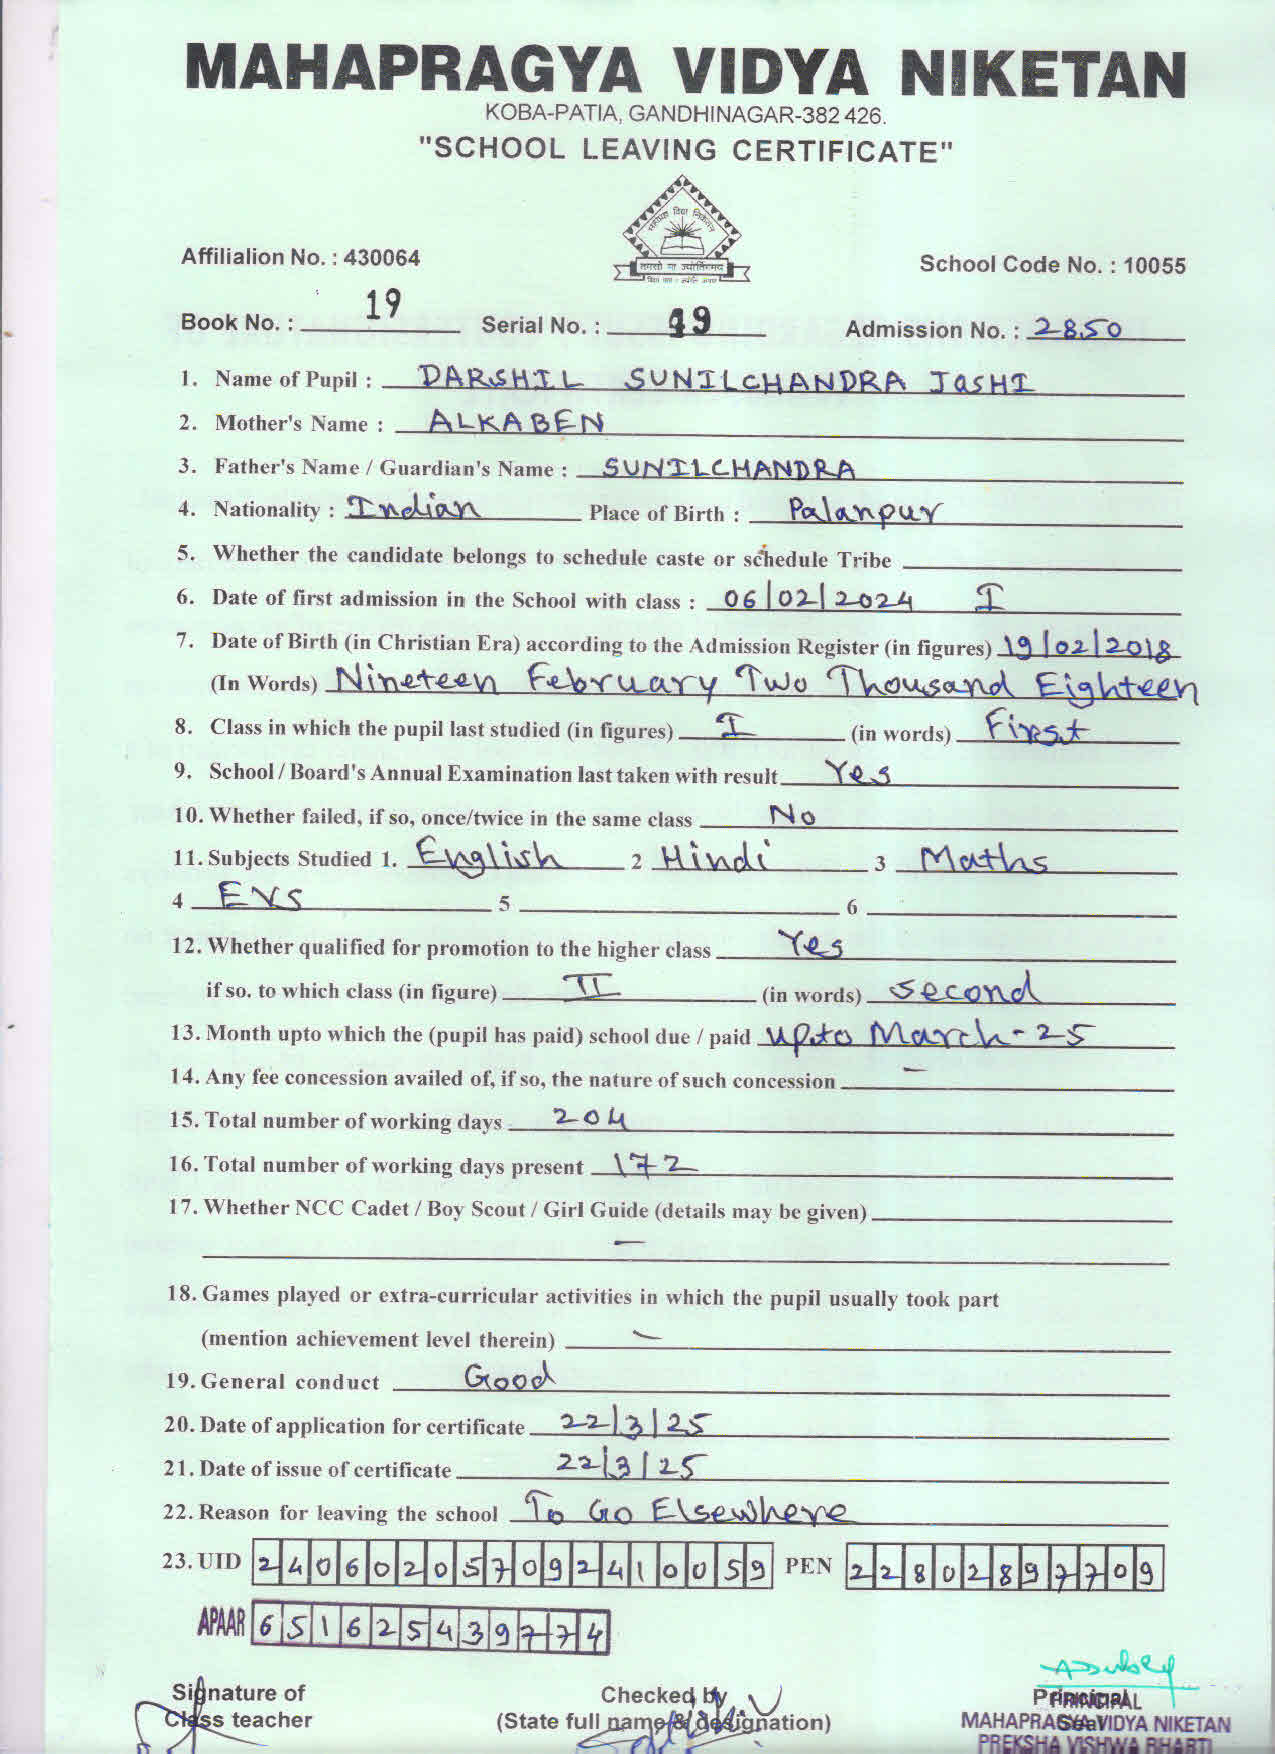 MAHAPRAGYA VIDYA NIKETAN
KOBA-PATIA, GANDHINAGAR-382 426.
"SCHOOL LEAVING CERTIFICATE"
महाप्रज्ञ विद्या निकेतन
तमसो मा ज्योतिर्गमय
Affilialion No. : 430064 School Code No. : 10055
Book No. : 19 Serial No. : 19 Admission No. : 2850
1. Name of Pupil : DARSHIL SUNILCHANDRA JOSHI
2. Mother's Name : ALKABEN
3. Father's Name / Guardian's Name : SUNILCHANDRA
4. Nationality : Indian Place of Birth : Palanpur
5. Whether the candidate belongs to schedule caste or schedule Tribe
6. Date of first admission in the School with class : 06/02/2024 I
7. Date of Birth (in Christian Era) according to the Admission Register (in figures) 19/02/2018
(In Words) Nineteen February Two Thousand Eighteen
8. Class in which the pupil last studied (in figures) I (in words) First
9. School / Board's Annual Examination last taken with result Yes
10. Whether failed, if so, once/twice in the same class No
11. Subjects Studied 1. English 2 Hindi 3 Maths
4 EVS 5 6
12. Whether qualified for promotion to the higher class Yes
if so. to which class (in figure) II (in words) second
13. Month upto which the (pupil has paid) school due / paid Upto March-25
14. Any fee concession availed of, if so, the nature of such concession -
15. Total number of working days 204
16. Total number of working days present 172
17. Whether NCC Cadet / Boy Scout / Girl Guide (details may be given)
-
18. Games played or extra-curricular activities in which the pupil usually took part
(mention achievement level therein) -
19. General conduct Good
20. Date of application for certificate 22/3/25
21. Date of issue of certificate 22/3/25
22. Reason for leaving the school To Go Elsewhere
23. UID 240602057092410059 PEN 22802897709
APAAR 651625439774
Signature of Checked by Principal
PRINCIPAL
Class teacher (State full name & designation) Seal
MAHAPRAGYA VIDYA NIKETAN
PREKSHA VISHWA BHARTI